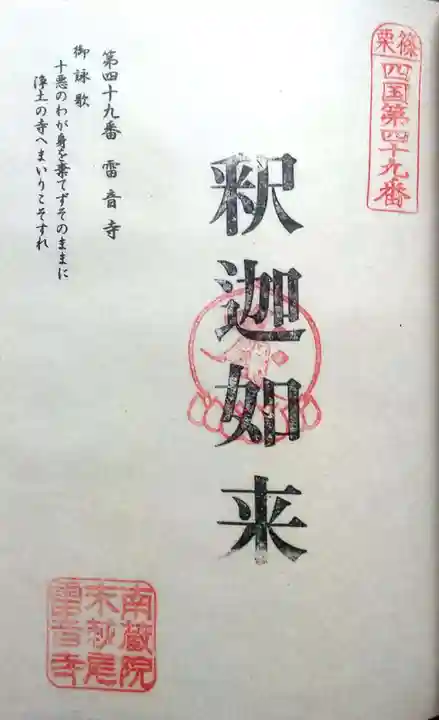 篠栗
四国第四十九番
釈迦如来
第四十九番 雷音寺
御詠歌
十悪のわが身を棄てずそのままに
浄土の寺へまいりこそすれ
南蔵院
木萩尾
雷音寺